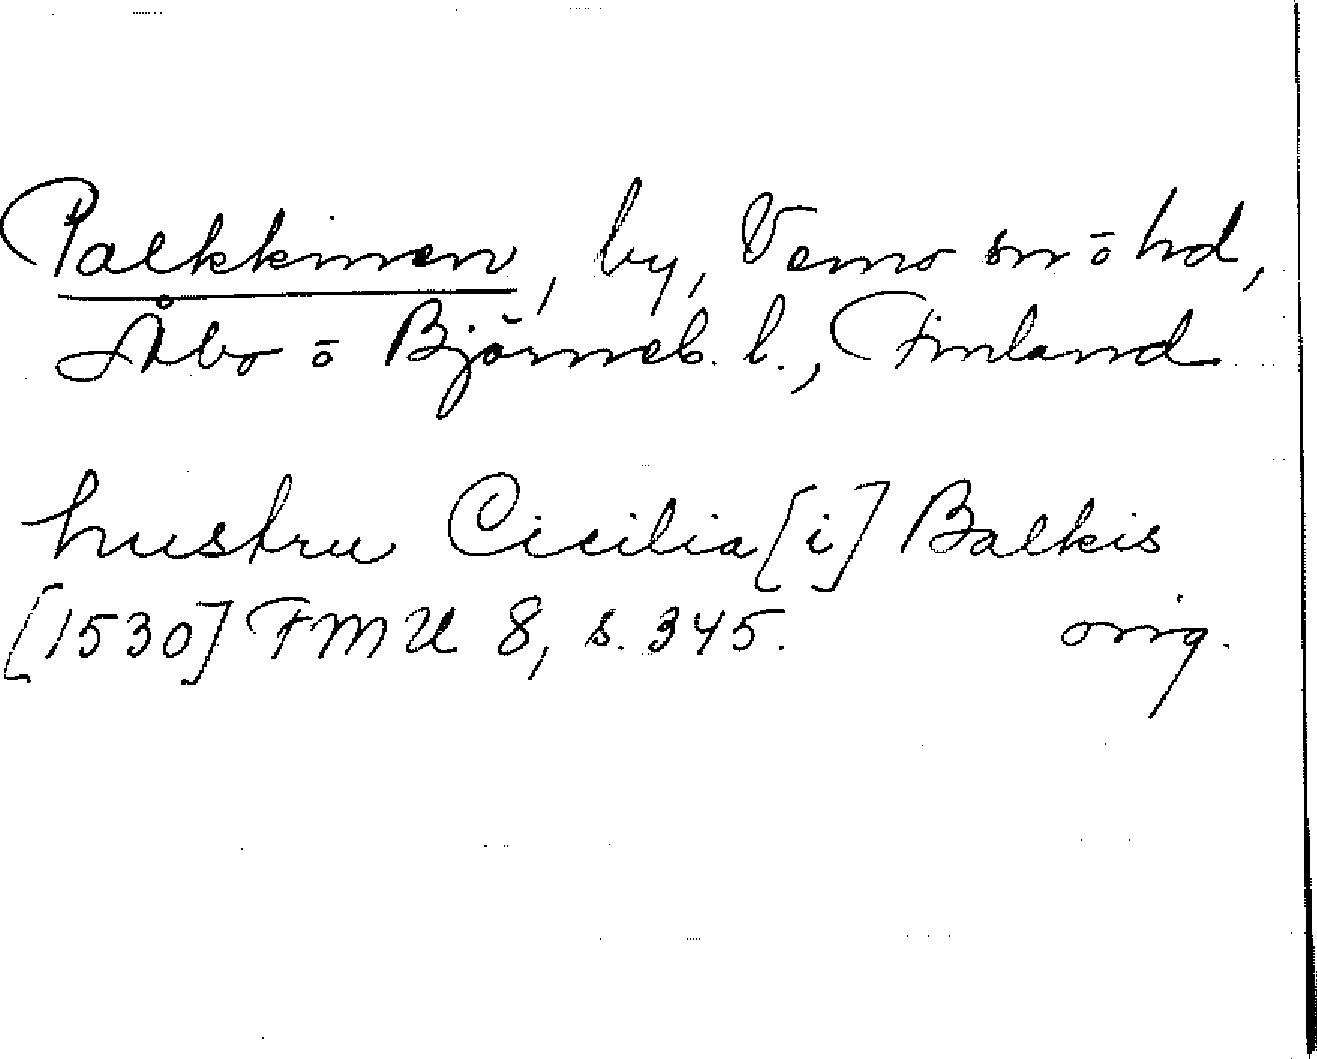 Palkkinen, by, Vemo sn o hd,
Åbo o Björneb. l., Finland
hustru Cicilia [i] Balkis
[1530] FMU 8, s. 345. orig.